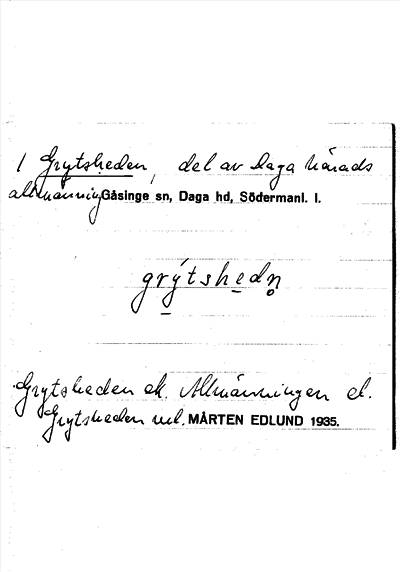 1 Grytsheden, del av Daga härads
allmänning Gåsinge sn, Daga hd, Södermanl. l.
grýtshedn̥
Grytsheden ek. Allmänningen el.
Grytsheden uel. MÅRTEN EDLUND 1935.